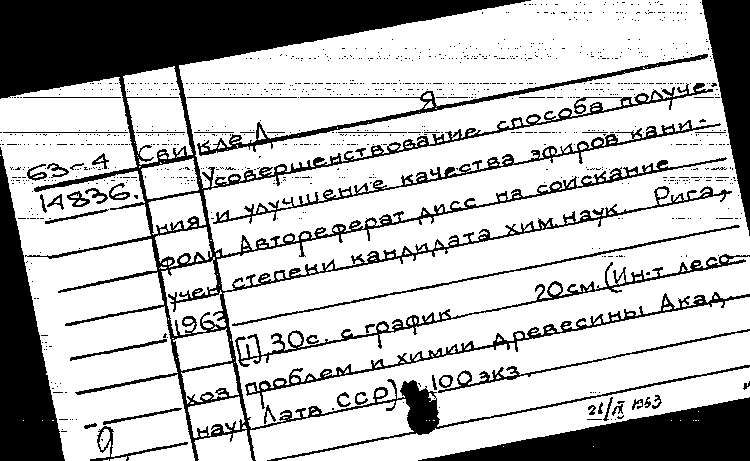 Я
63-4 Свикле, Д
14836. Усовершенствование способа получе-
ния и улучшение качества эфиров кани-
фоли Автореферат дисс на соискание
учен степени кандидата хим. наук. Рига,
1963
[1], 30с. с график 20см. (Ин-т лесо
хоз проблем и химии древесины Акад
наук Латв. ССР) 100 экз.